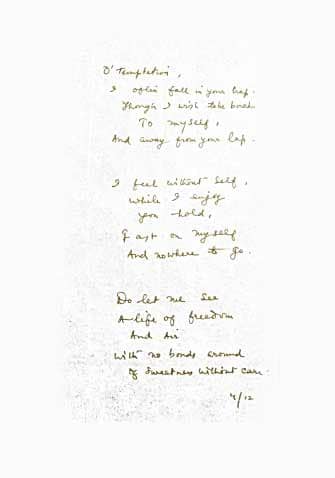 O' Temptation,
I often fall in your trap.
Though I wish take back
To myself,
And away from your lap.
I feel without self,
While I enjoy
your hold,
on myself
And nowhere to go.
Do let me see
A life of freedom
And air
with no bonds around
Of sweetness without care.
4/12